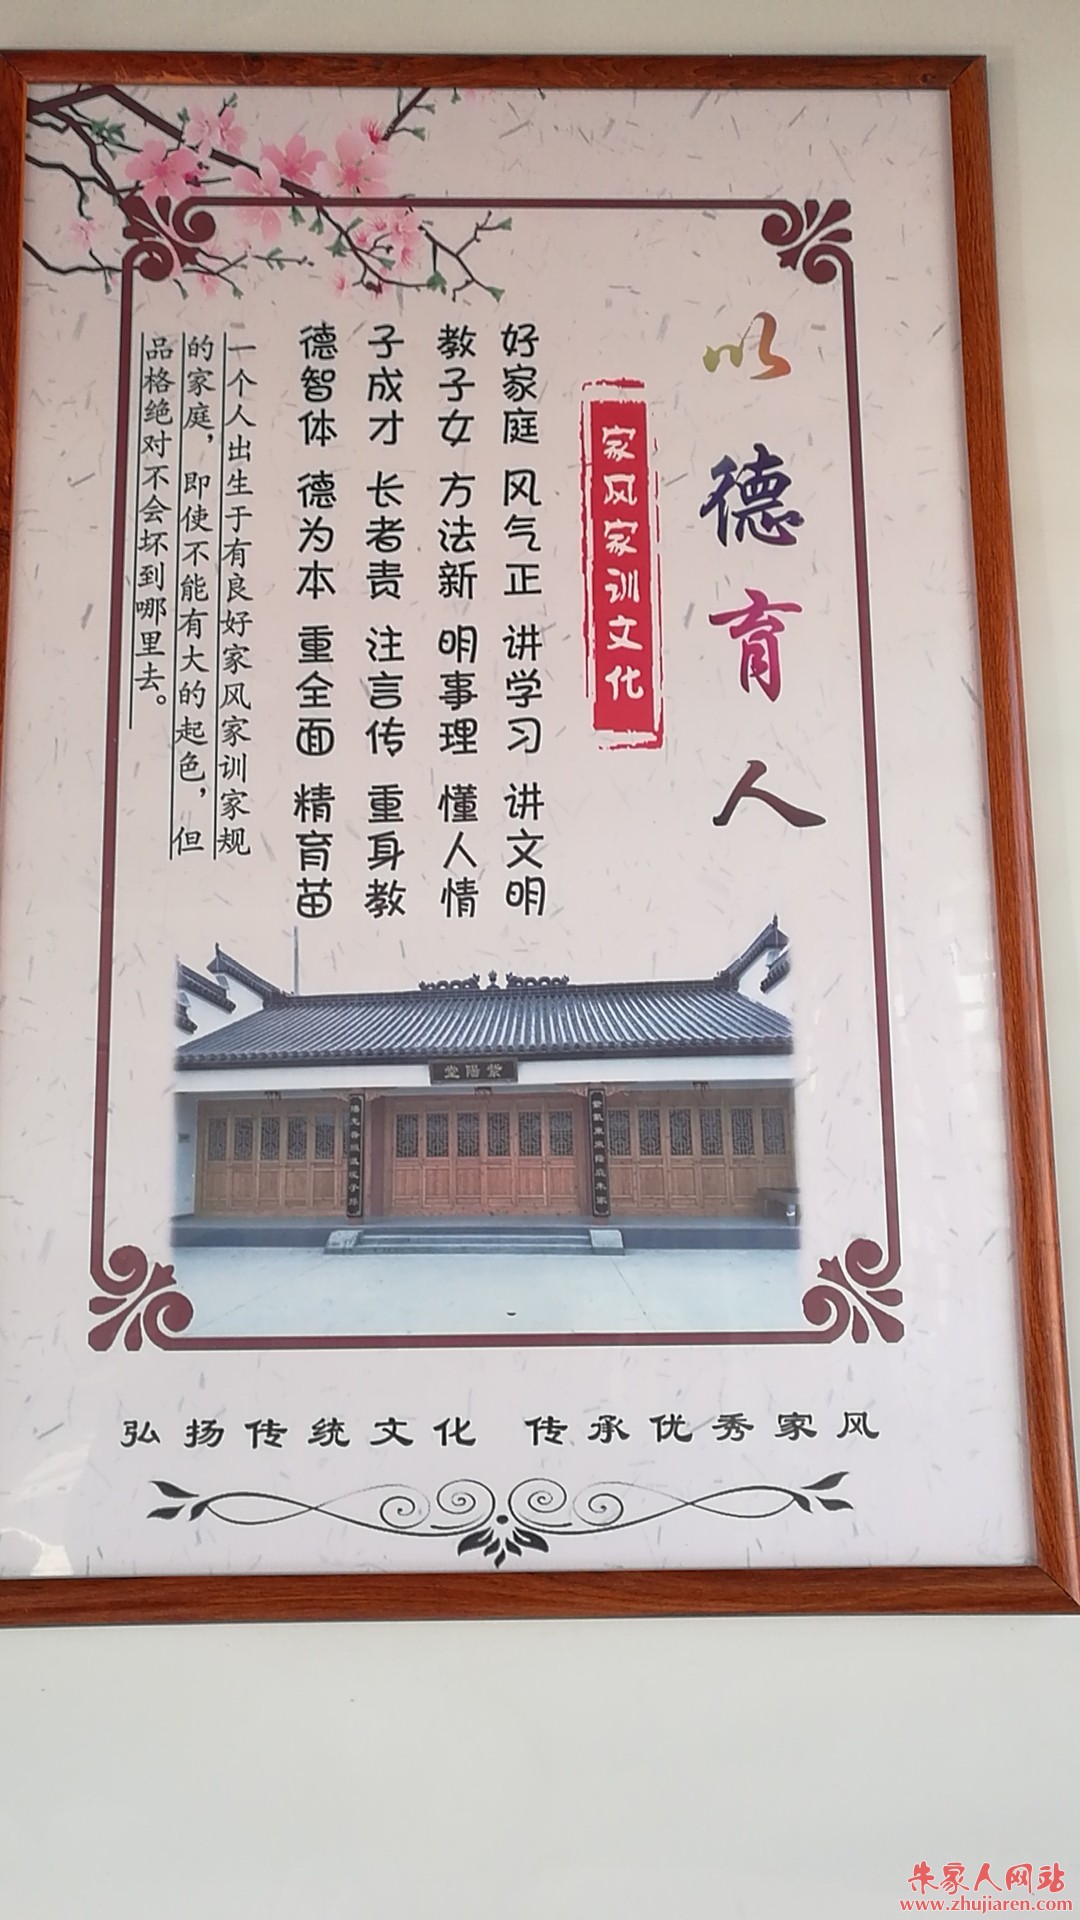 以德育人
家风家训文化
好家庭 风气正 讲学习 讲文明
教子女 方法新 明事理 懂人情
子成才 长者责 注言传 重身教
德智体 德为本 重全面 精育苗
一个人出生于有良好家风家训家规
的家庭，即使不能有大的起色，但
品格绝对不会坏到哪里去。
紫陽堂
弘扬传统文化 传承优秀家风
朱家人网站
www.zhujiaren.com